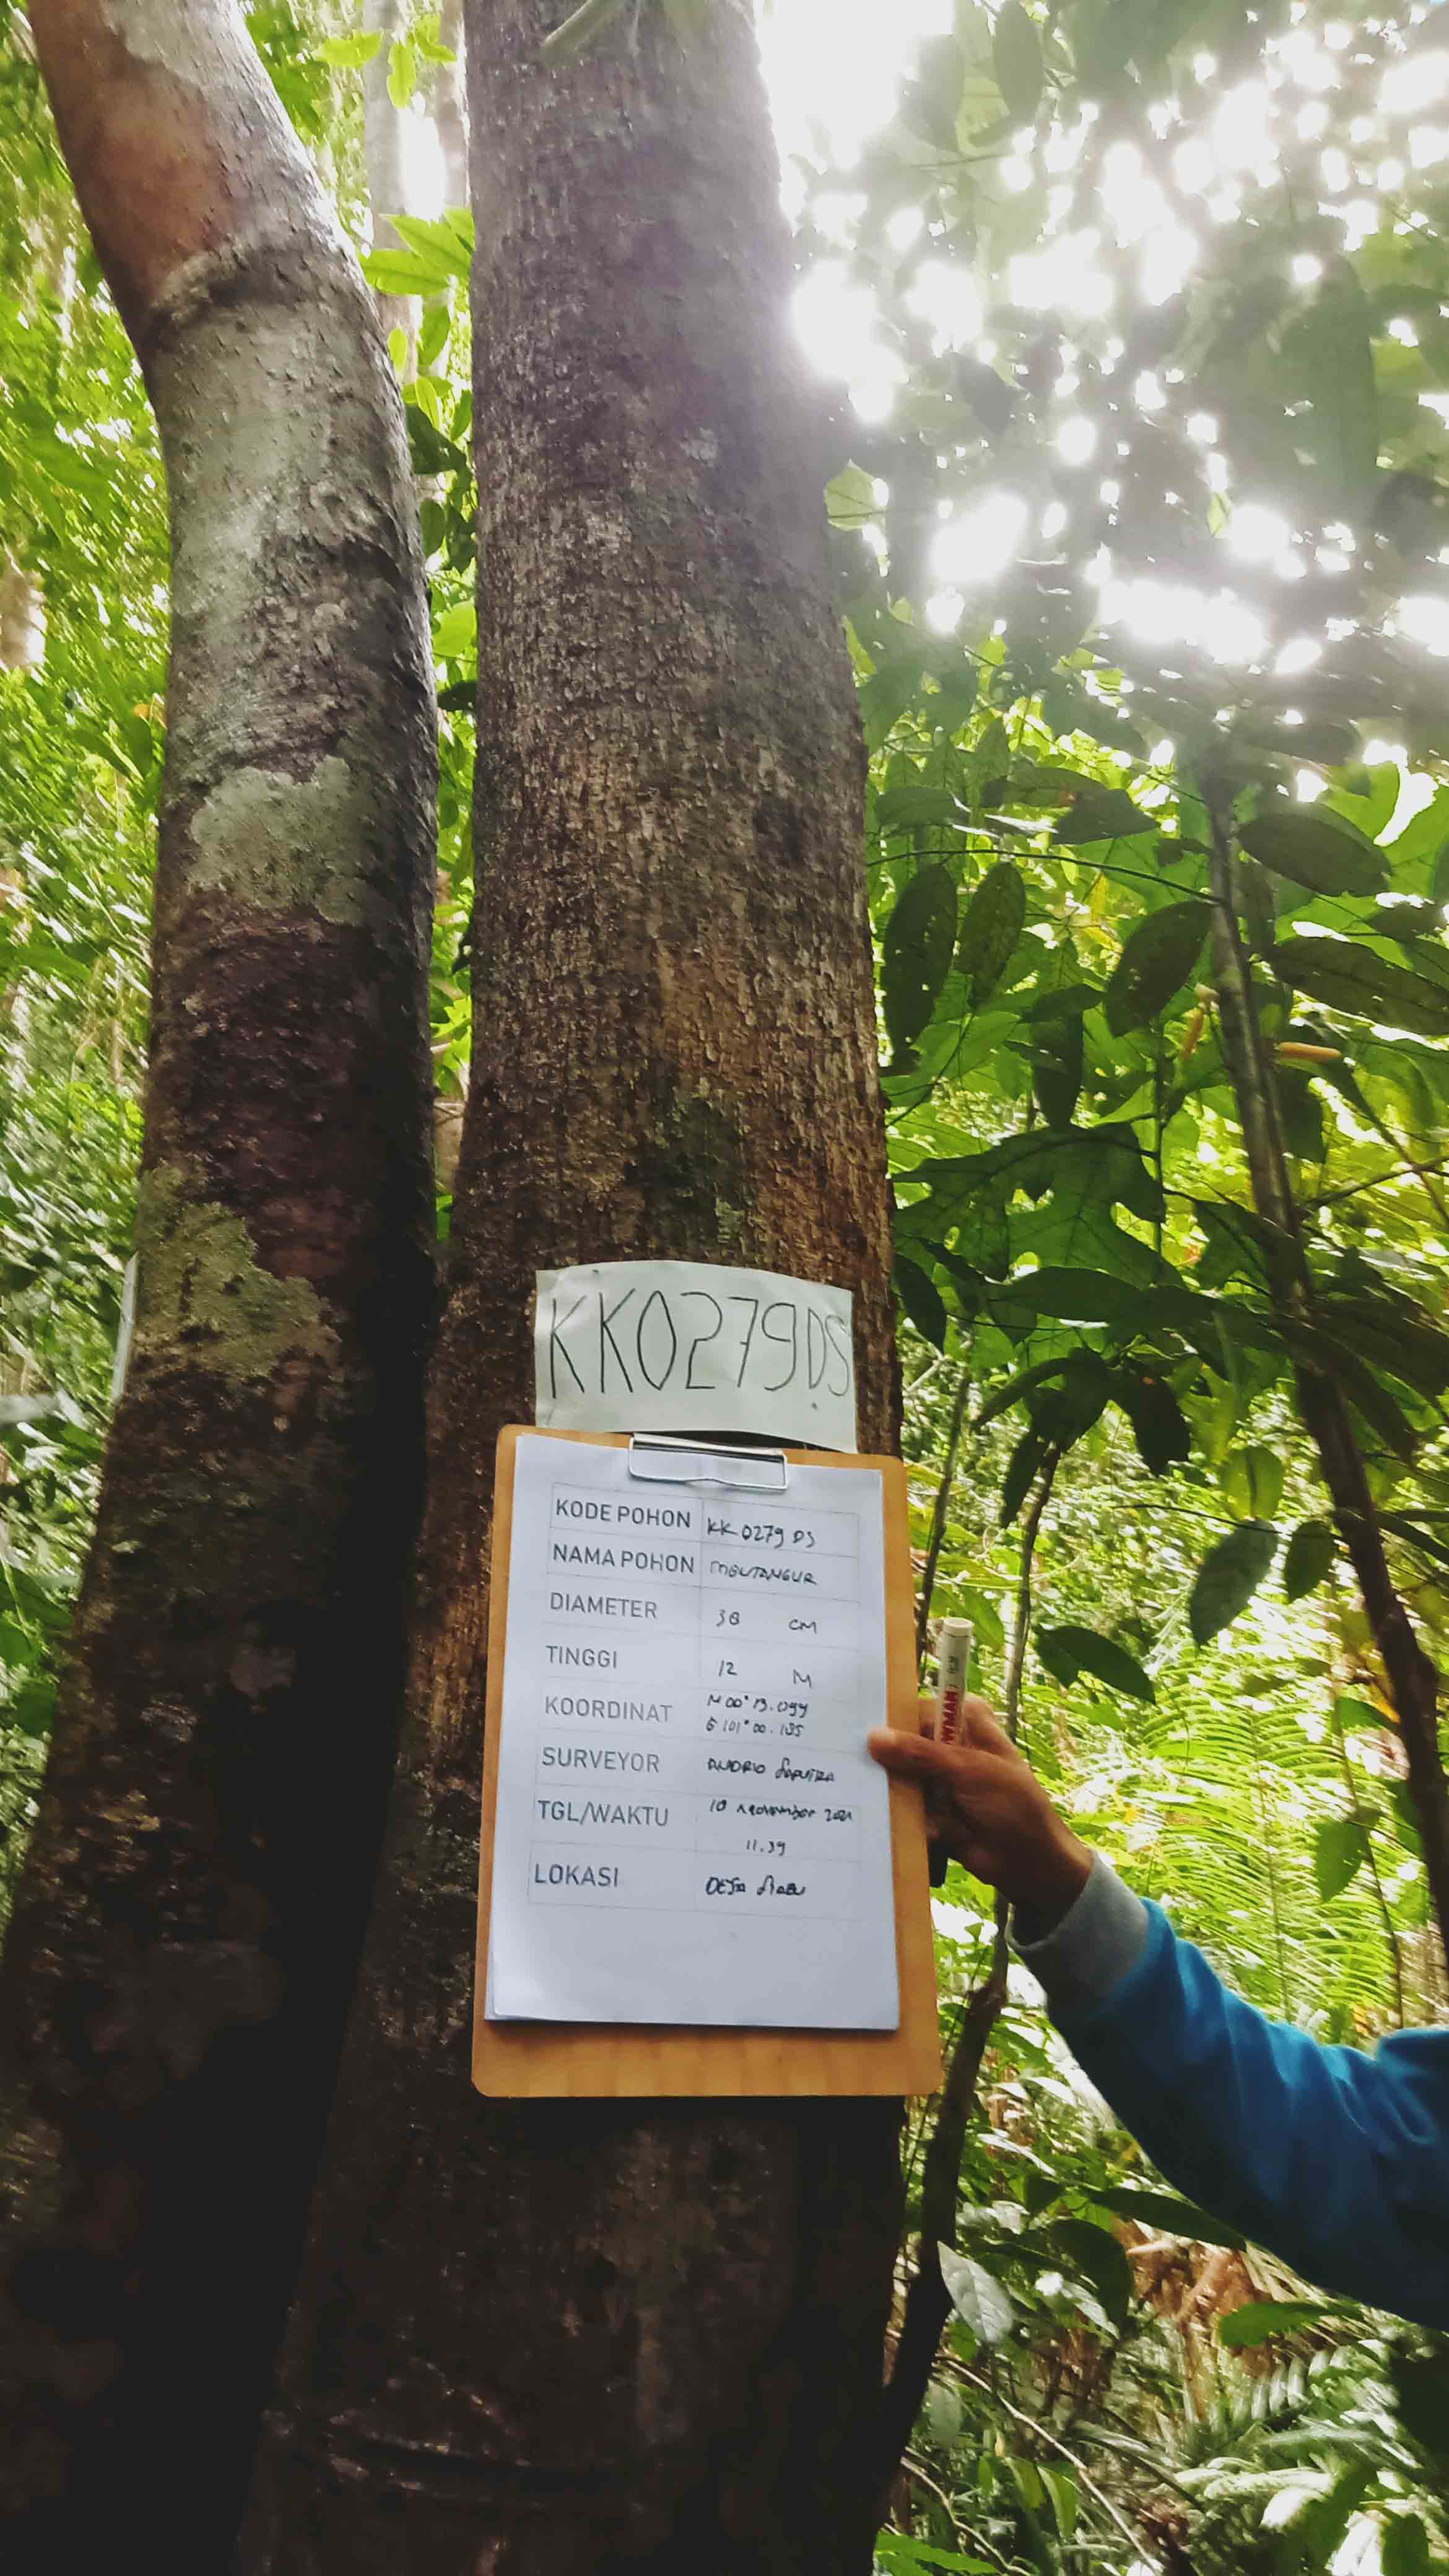 KK0279DS
KODE POHON KK 0279 DS
NAMA POHON MEUTANGUR
DIAMETER 38 CM
TINGGI 12 M
KOORDINAT N 00° 13.099
E 101° 00.135
SURVEYOR ANDRIO SAPUTRA
TGL/WAKTU 10 November 2021
11.39
LOKASI DESA SIABU